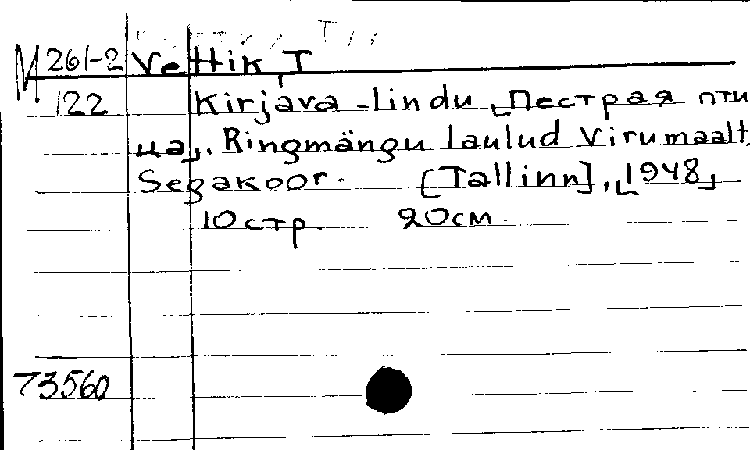 М 261-2 Vettik, T
122 Kirjava-lindu ⌊Пестрая пти
ца⌋. Ringmängu laulud Virumaalt,
Segakoor. [Tallinn], ⌊1948⌋
10 стр. 20 см.
73560